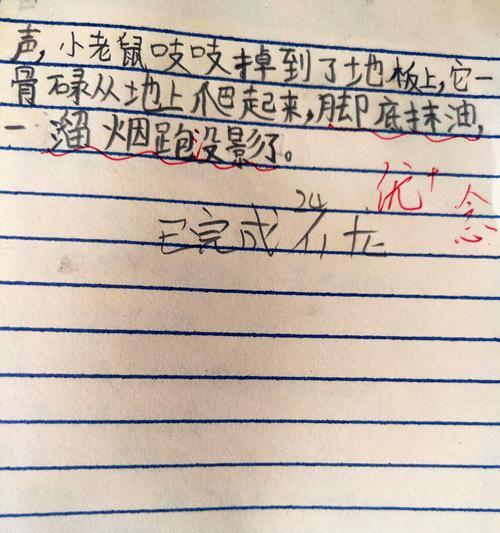 声,小老鼠吱吱掉到了地板上,它一
骨碌从地上爬起来,脚底抹油,
一溜烟跑没影了。
优+
念
已完成